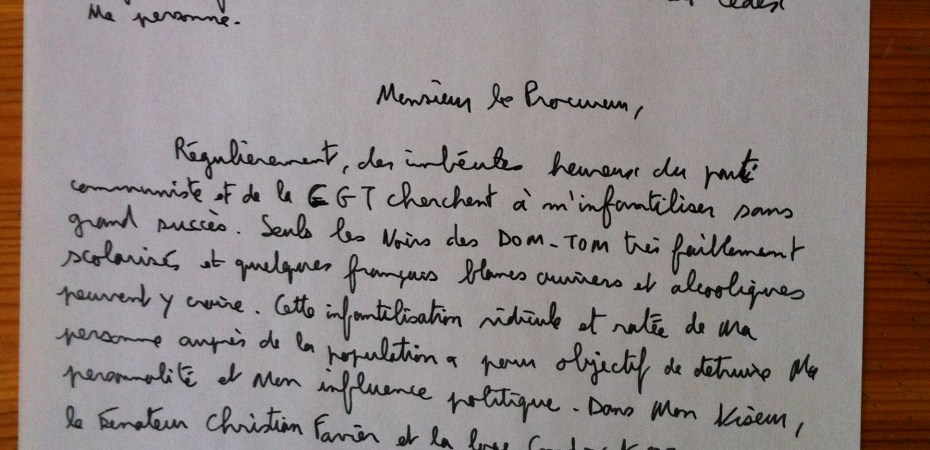 Ma personne.
Monsieur le Procureur,
Régulièrement, des imbéciles heureux du parti
communiste et de la CGT cherchent à m'infantiliser sans
grand succès. Seuls les Noirs des DOM-TOM très faiblement
scolarisés et quelques français blancs ouvriers et alcooliques
peuvent y croire. Cette infantilisation ridicule et ratée de ma
personne auprès de la population a pour objectif de détruire Ma
personnalité et Mon influence politique. Dans Mon
le Sénateur Christian Favier et la